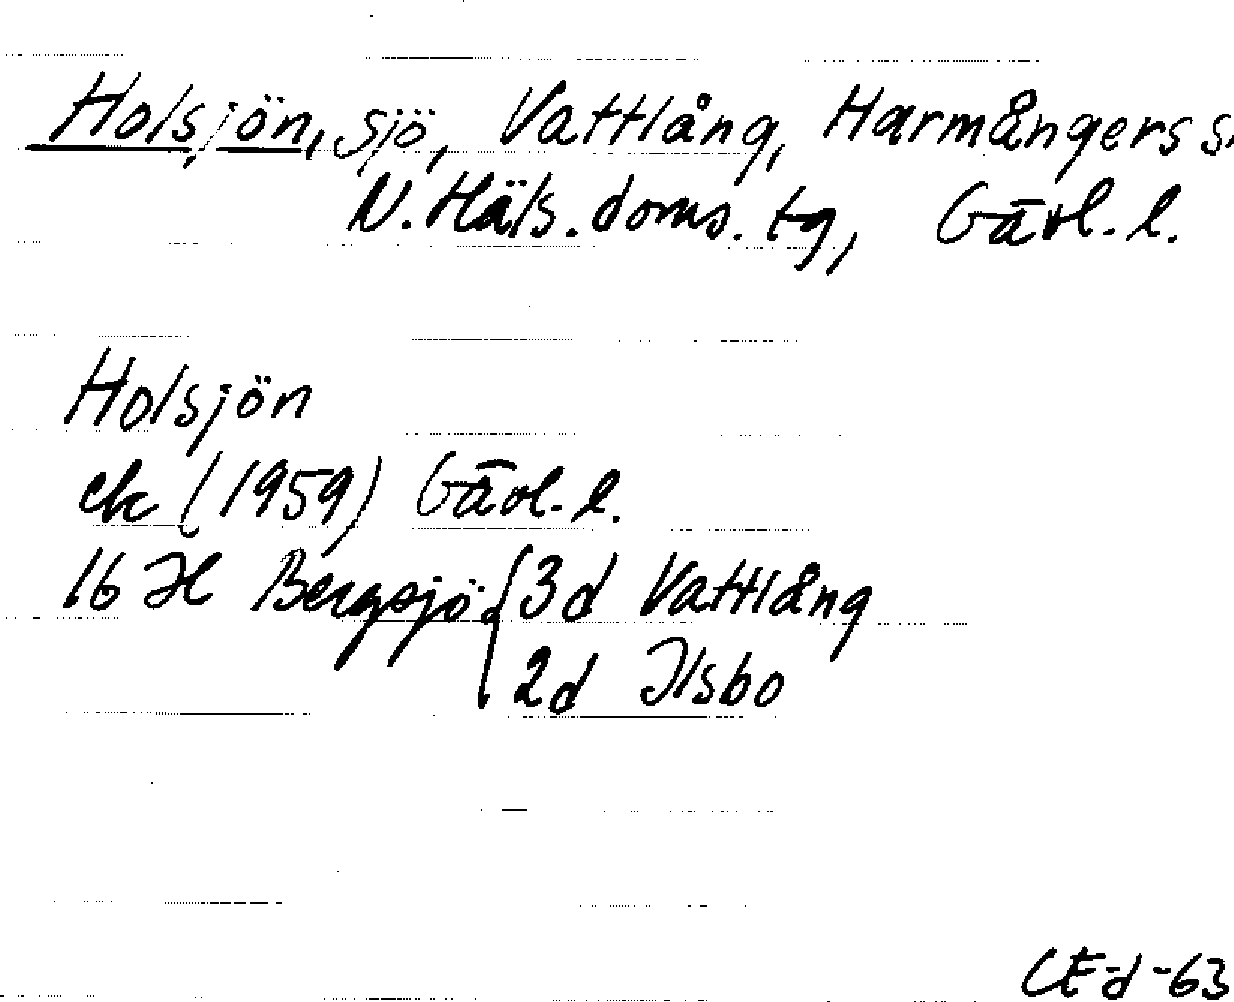 Holsjön, sjö, Vattlång, Harmångers s
N. Häls. doms. tg, Gävl. l.
Holsjön
ek (1959) Gävl. l.
16 H Bergsjö { 3d Vattlång
2d Ilsbo
CEd -63